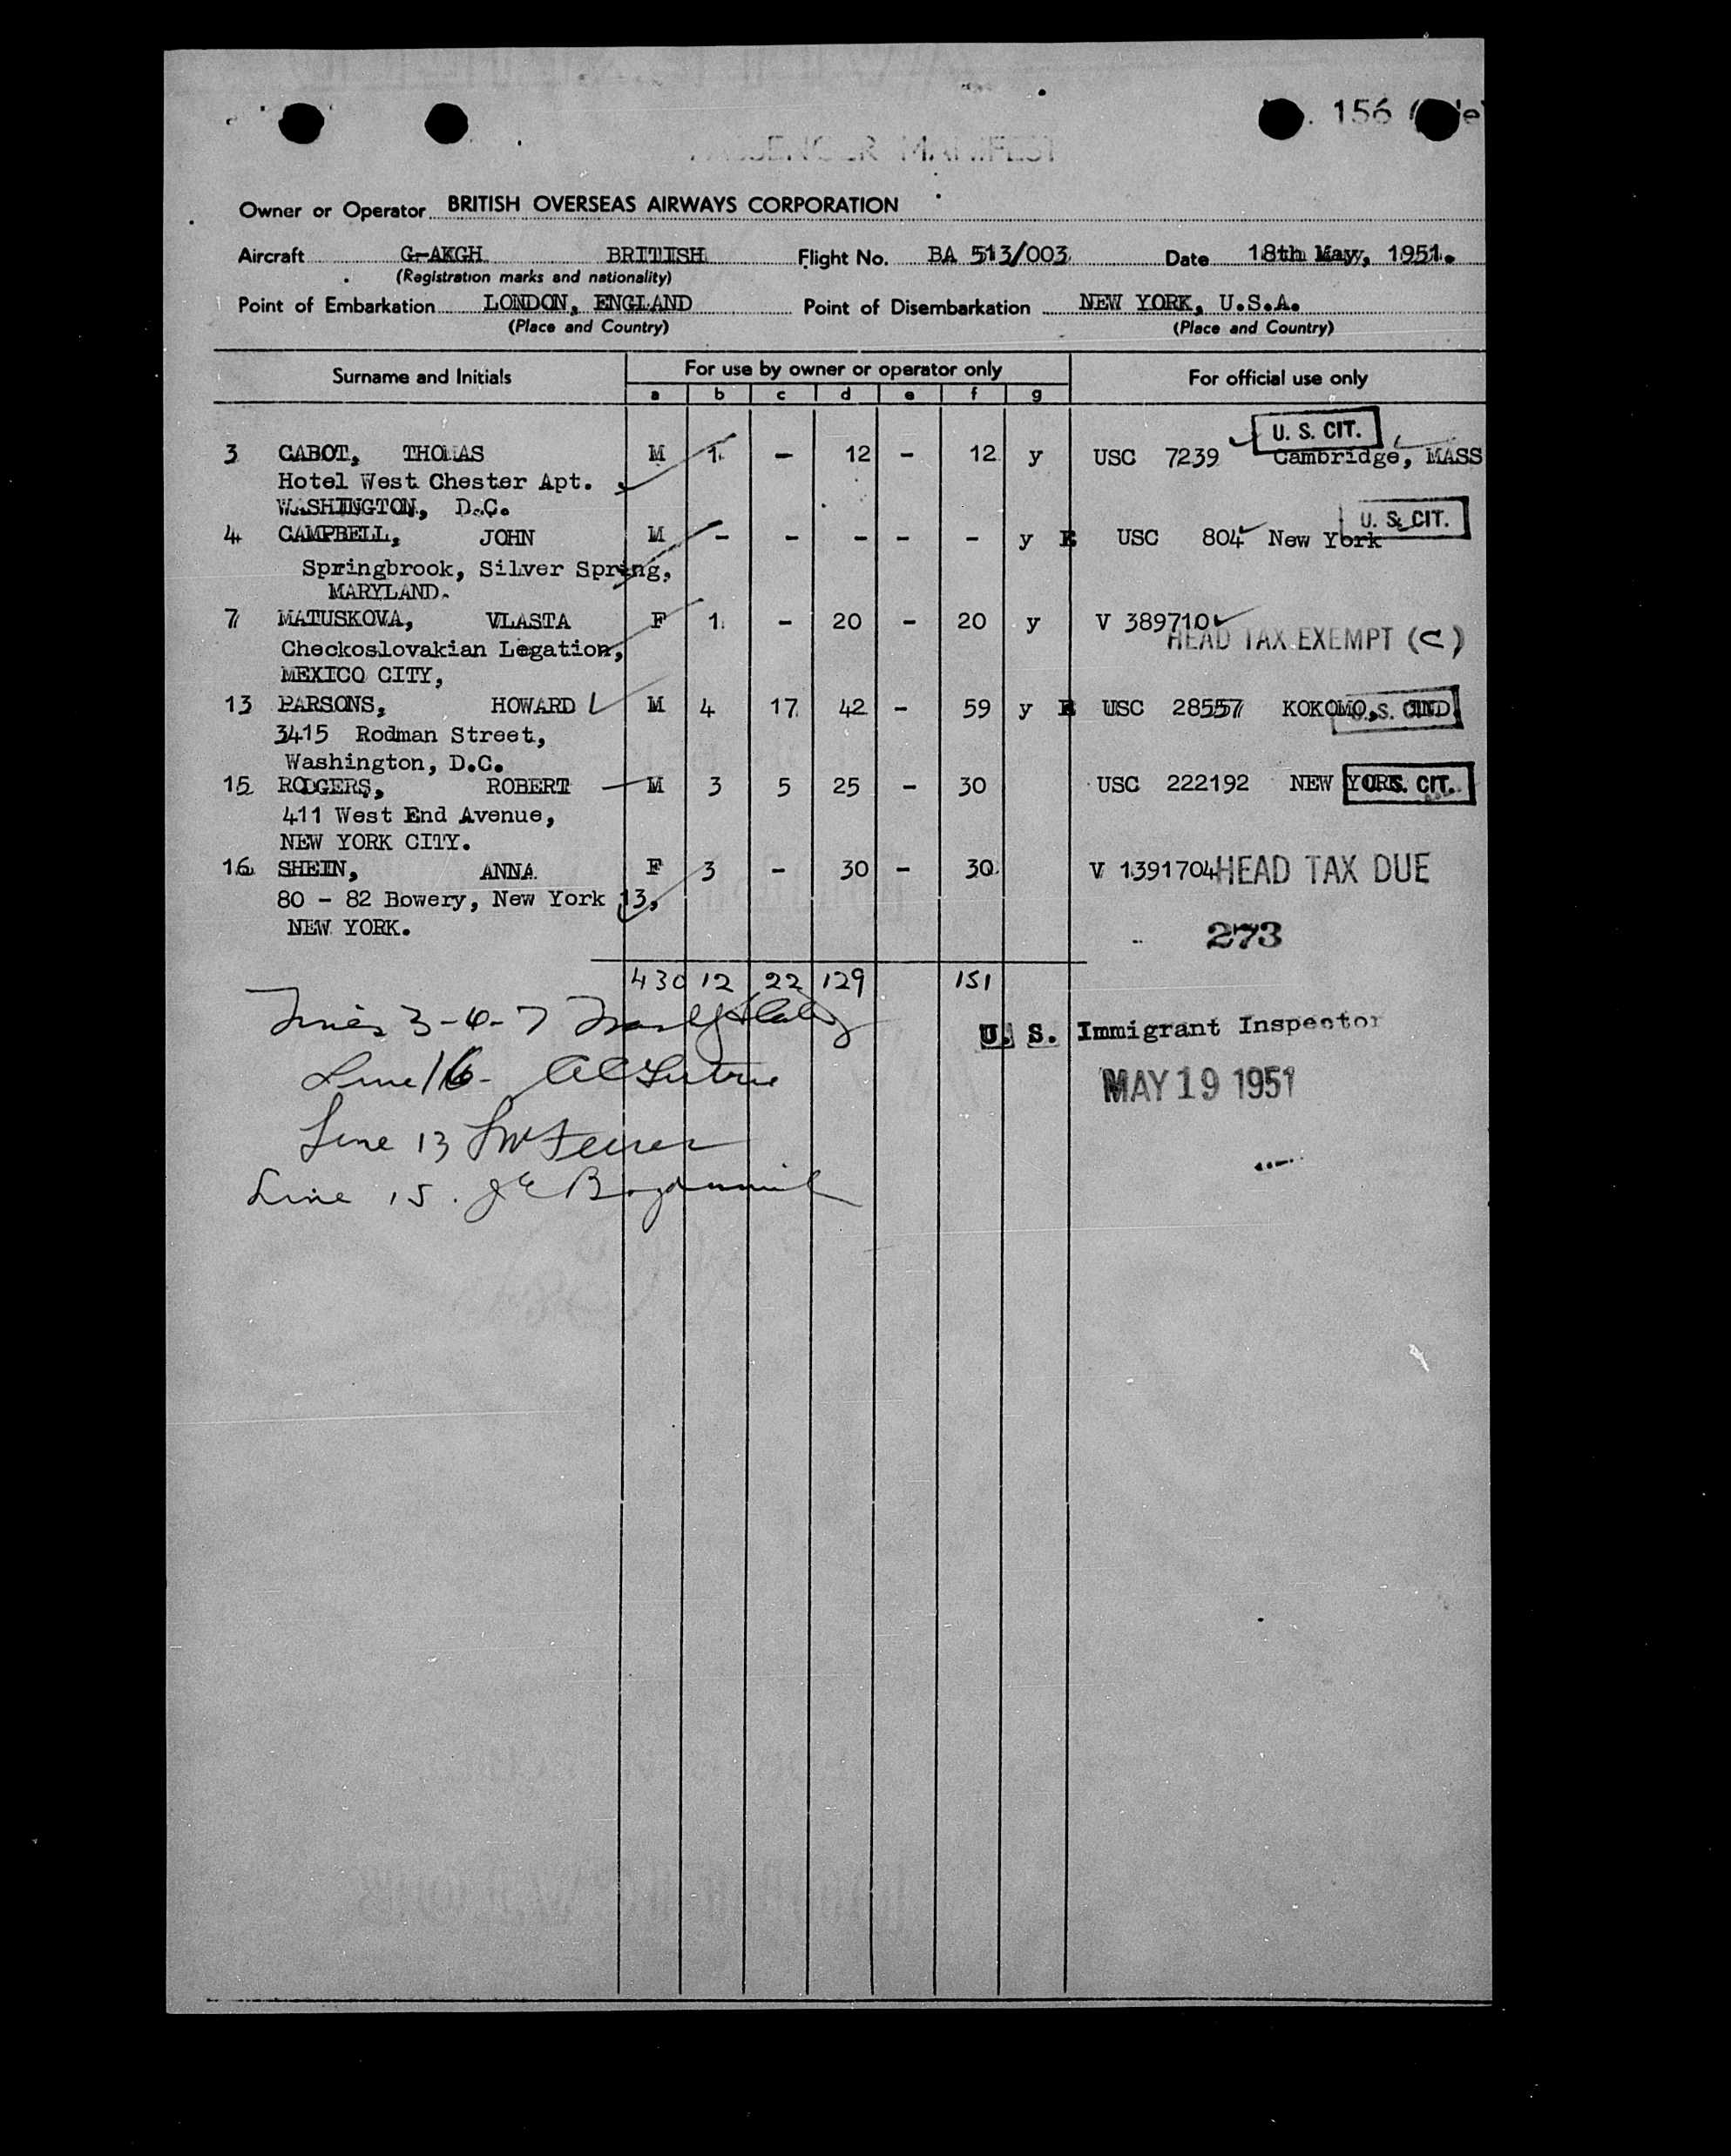 . 156
Owner or Operator BRITISH OVERSEAS AIRWAYS CORPORATION
Aircraft G-AKGH BRITISH Flight No. BA 513/003 Date 18th May, 1951.
(Registration marks and nationality)
Point of Embarkation LONDON, ENGLAND Point of Disembarkation NEW YORK, U.S.A.
(Place and Country) (Place and Country)
Surname and Initials For use by owner or operator only For official use only
a b c d e f g
U. S. CIT.
3 CABOT, THOMAS M 1 - 12 - 12 y USC 7239 Cambridge, MASS
Hotel West Chester Apt.
WASHINGTON, D.C.
U. S. CIT.
4 CAMPBELL, JOHN M - - - - - y R USC 804 New York
Springbrook, Silver Spring,
MARYLAND.
7 MATUSKOVA, VLASTA F 1 - 20 - 20 y V 389710
HEAD TAX EXEMPT (C)
Checkoslovakian Legation,
MEXICO CITY,
13 PARSONS, HOWARD M 4 17 42 - 59 y R USC 28557 KOKOMO, IND U. S. CIT.
3415 Rodman Street,
Washington, D.C.
15 RODGERS, ROBERT M 3 5 25 - 30 USC 222192 NEW YORK U. S. CIT.
411 West End Avenue,
NEW YORK CITY.
16 SHEIN, ANNA F 3 - 30 - 30 V 1391704 HEAD TAX DUE
80 - 82 Bowery, New York 13,
NEW YORK.
273
430 12 22 129 151
Lines 3-4-7
U. S. Immigrant Inspector
Line 16-
MAY 19 1951
Line 13
Line 15.